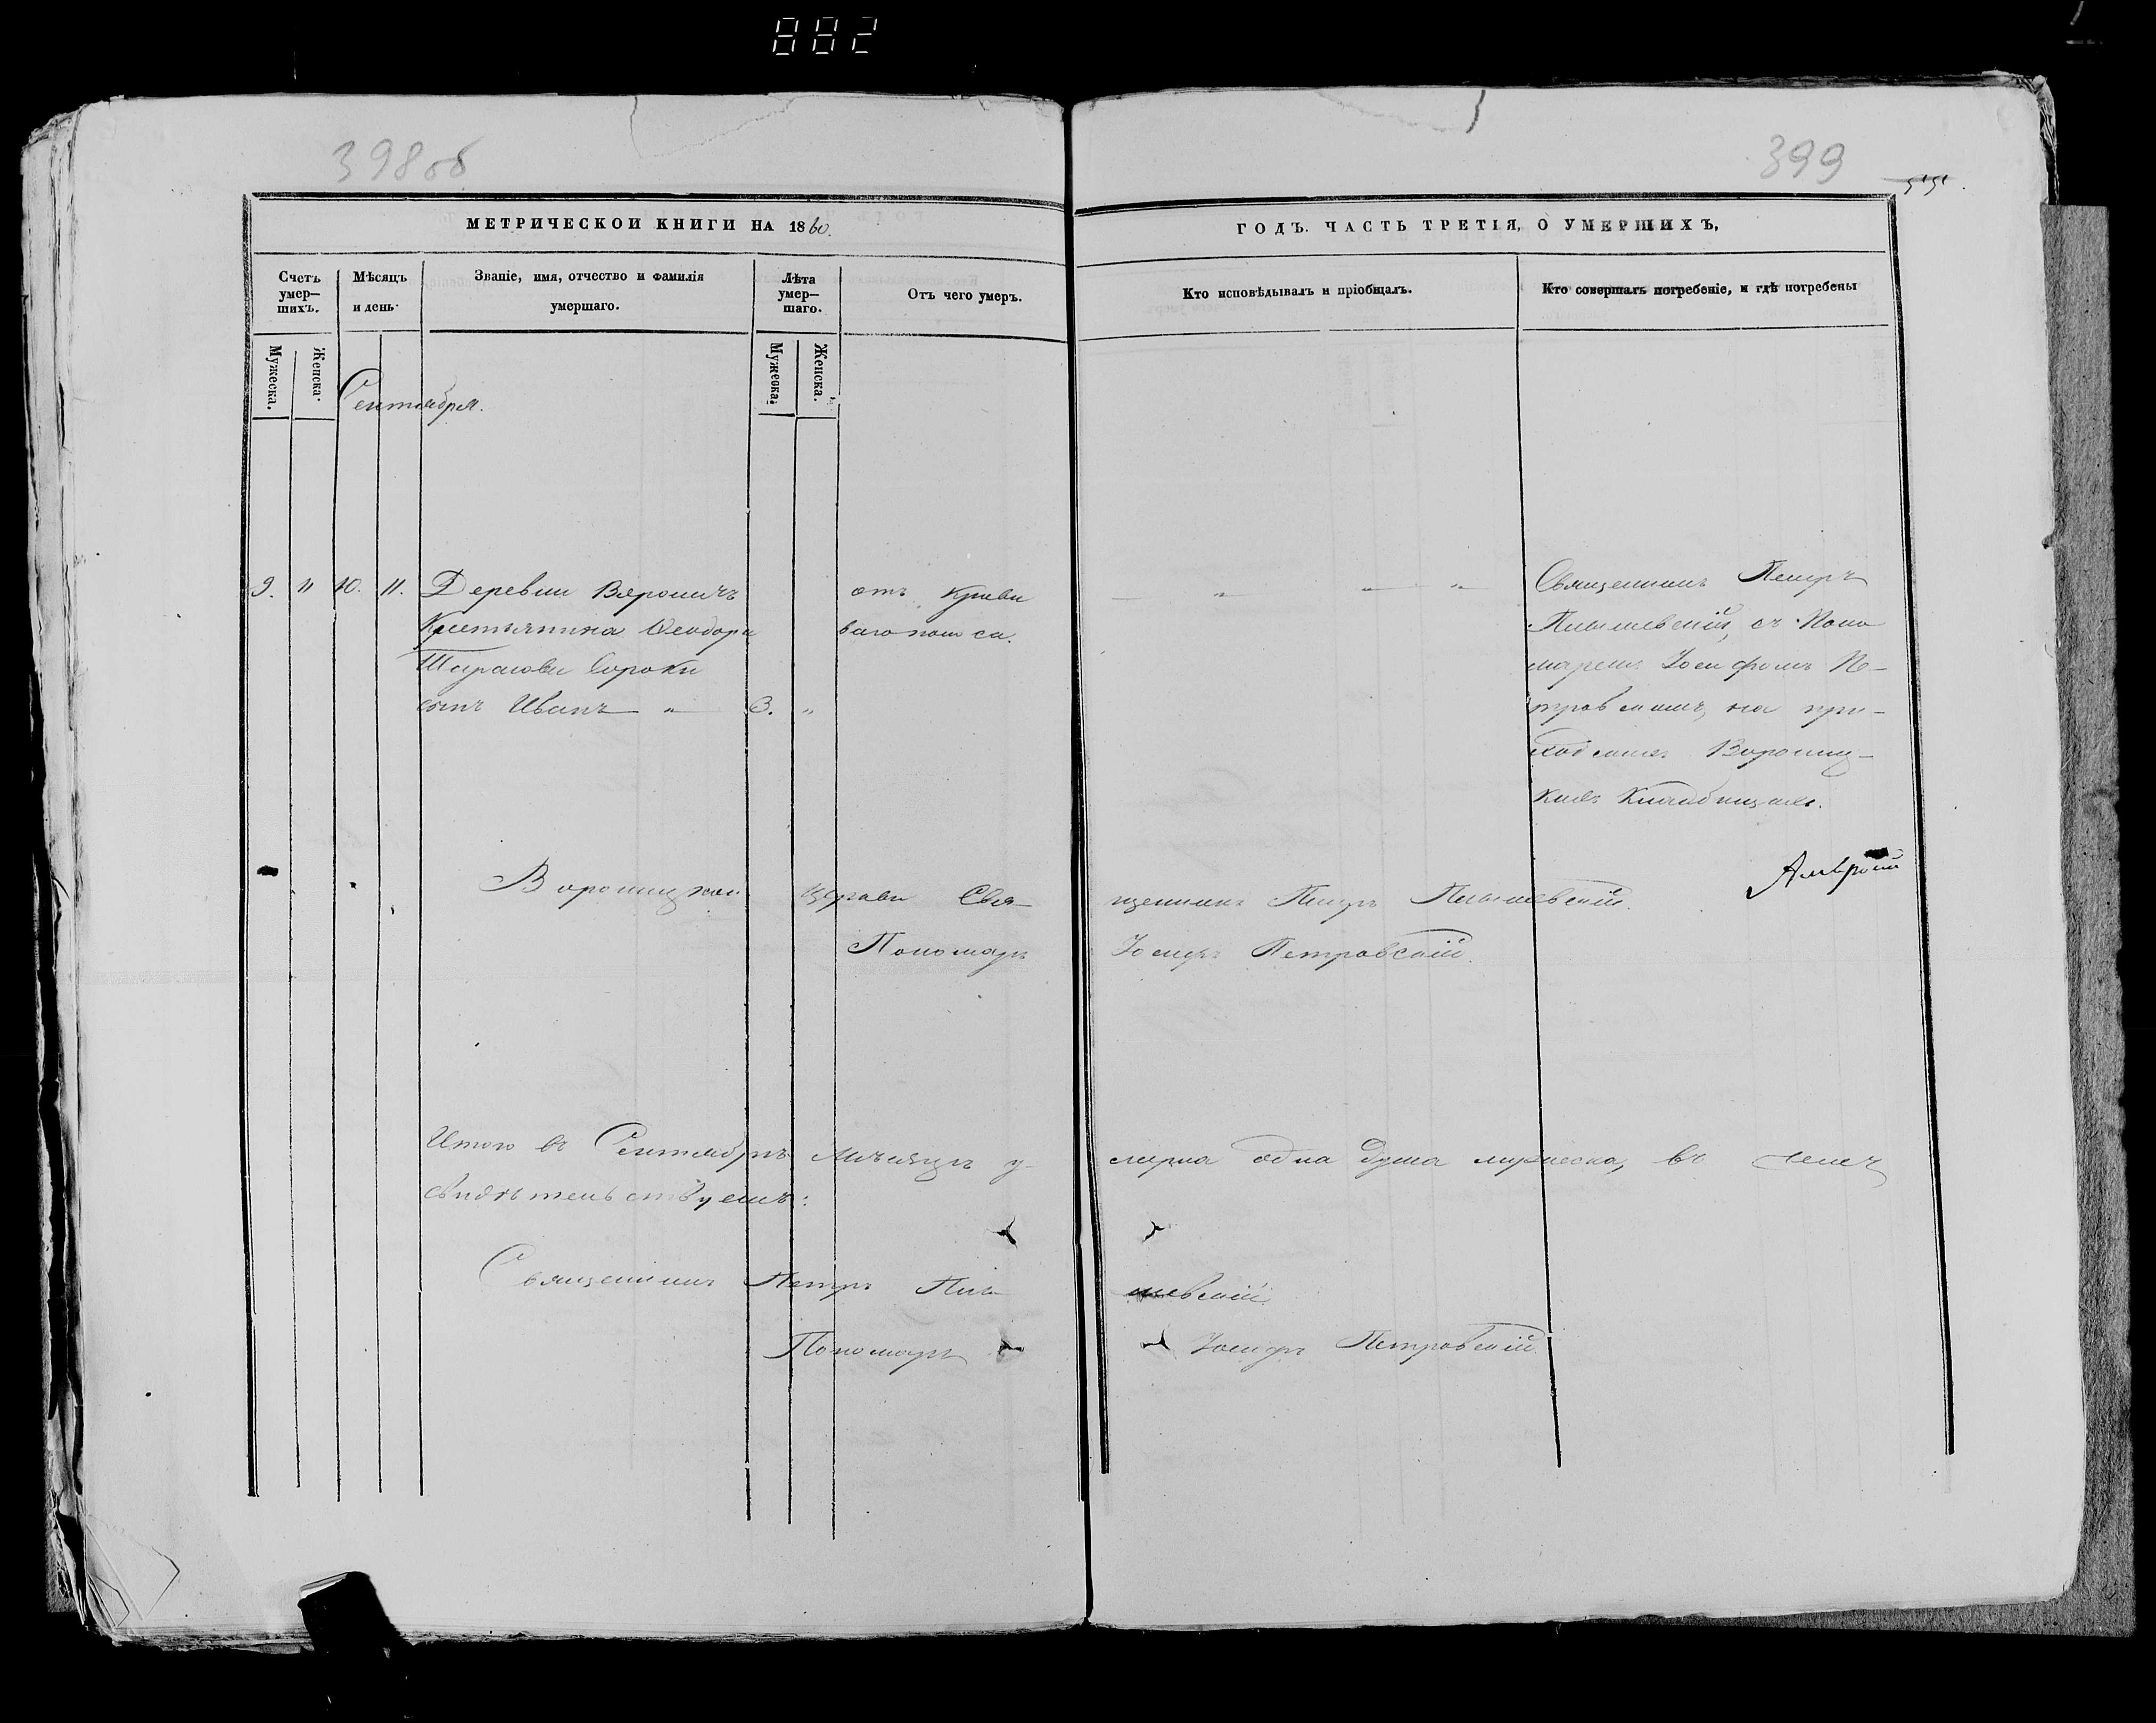 882
398об
399
МЕТРИЧЕСКОЙ КНИГИ НА 1860.
ГОДЪ. ЧАСТЬ ТРЕТІЯ, О УМЕРШИХЪ,
Счетъ умер— шихъ.
Мѣсяцъ и день.
Званіе, имя, отчество и фамилія умершаго.
Лѣта умер— шаго.
Отъ чего умеръ.
Кто исповѣдывалъ и пріобщалъ.
Кто совершалъ погребеніе, и гдѣ погребены
Мужеска.
Женска.
Мужеска.
Женска.
Сентября.
9. " 10. 11. Деревни Вороничъ
Крестьянина Ѳеодора
Сороки
сынъ Иванъ " 3. "
отъ Крови
ваго поноса.
Священникъ Петръ
съ Поно
маремъ Іосифомъ Пе—
тровскимъ, на при—
ходскомъ Ворониц—
комъ Кладбищѣ.
Вороницкой Церкви Свя—
щенникъ Петръ
Пономарь Іосифъ Петровскій.
Итого въ Сентябрѣ Мѣсяцѣ у—
мерла одна душа мужеска, въ чемъ
свидѣтельствуемъ:
Священникъ Петръ
Пономарь Іосифъ Петровскій.